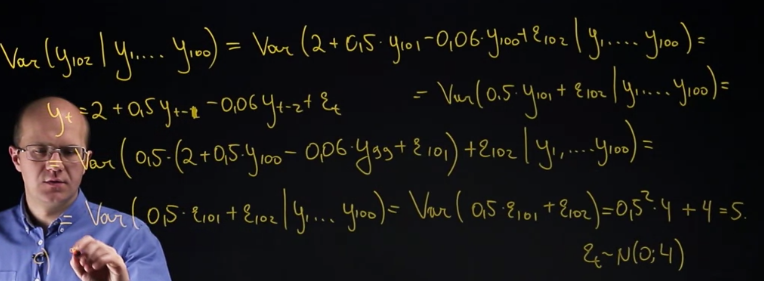 Var(y₁₀₂ | y₁.... y₁₀₀) = Var(2+0,5·y₁₀₁-0,06·y₁₀₀+ε₁₀₂ | y₁.... y₁₀₀) =
yₜ = 2+0,5yₜ₋₁ -0,06yₜ₋₂+εₜ = Var(0,5·y₁₀₁+ε₁₀₂ | y₁.... y₁₀₀) =
= Var(0,5·(2+0,5·y₁₀₀-0,06·y₉₉+ε₁₀₁)+ε₁₀₂ | y₁,....y₁₀₀) =
= Var(0,5·ε₁₀₁+ε₁₀₂ | y₁... y₁₀₀) = Var(0,5·ε₁₀₁+ε₁₀₂)=0,5²·4+4=5.
εₜ~N(0;4)